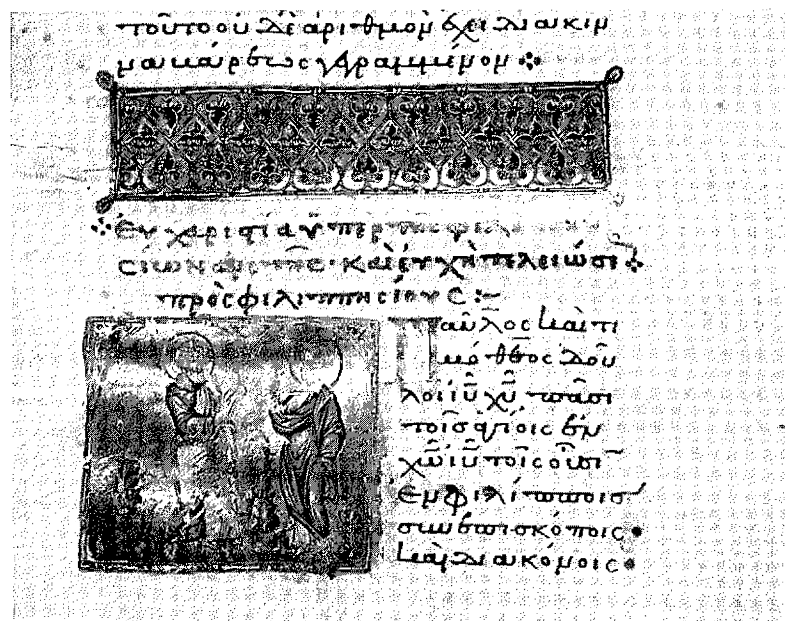 τοῦτο οὐ δὲ ἀριθμὸν ἔχει διακιν
μακάρεως γραμμένον
Εὐχαριστία ὑπὲρ τῆς φιλιππη
σίων ἀρετῆς· καὶ εὐχὴ τελειώσε
πρὸς φιλιππησίους :–
Παῦλος καὶ τι
μόθεος δοῦ
λοι ἰῦ χῦ πᾶσι
τοῖς ἁγίοις ἐν
χῶ ἰῦ τοῖς οὖσι
ἐν φιλίπποις
σὺν ἐπισκόποις
καὶ διακόνοις